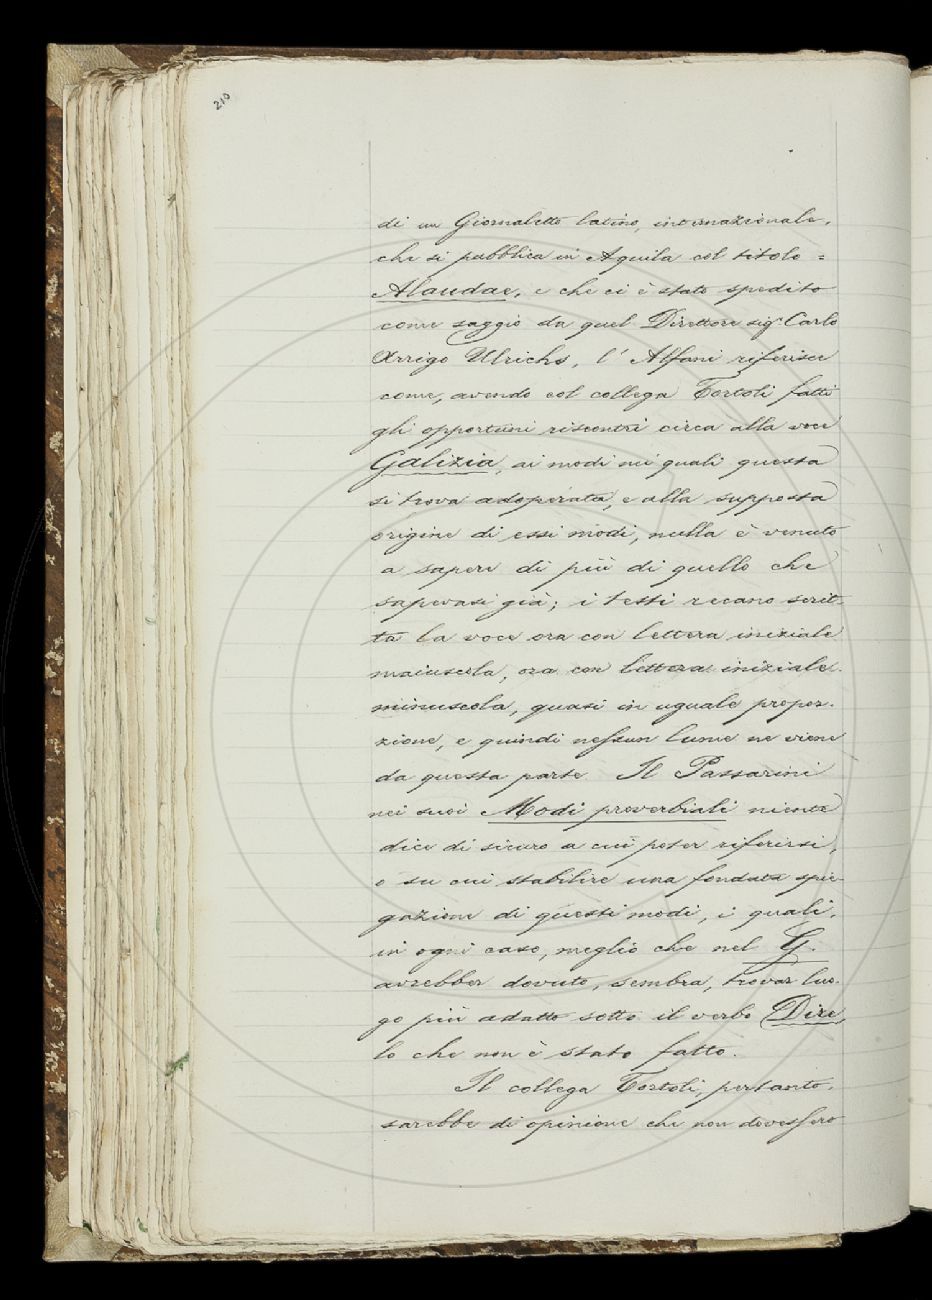 210
di un Giornaletto latino, internazionale,
che si pubblica in Aquila col titolo =
Alaudae, e che ci è stato spedito
come saggio da quel Direttore sigr Carlo
Arrigo Ulrichs, l'Alfani riferisce
come, avendo col collega Tortoli fatti
gli opportuni riscontri circa alla voce
Galizia, ai modi nei quali questa
si trova adoperata, e alla supposta
origine di essi modi, nulla è venuto
a sapere di più di quello che
sapevasi già; i testi recano scrit-
ta la voce ora con lettera iniziale
maiuscola, ora con lettera iniziale
minuscola, quasi in uguale propor-
zione, e quindi nessun lume ne viene
da questa parte. Il Passarini
nei suoi Modi proverbiali niente
dice di sicuro a cui poter riferirsi,
o su cui stabilire una fondata spie-
gazione di questi modi, i quali,
in ogni caso, meglio che nel G.
avrebber dovuto, sembra, trovar luo-
go più adatto sotto il verbo Dire,
lo che non è stato fatto.
Il collega Tortoli, pertanto,
sarebbe di opinione che non dovessero